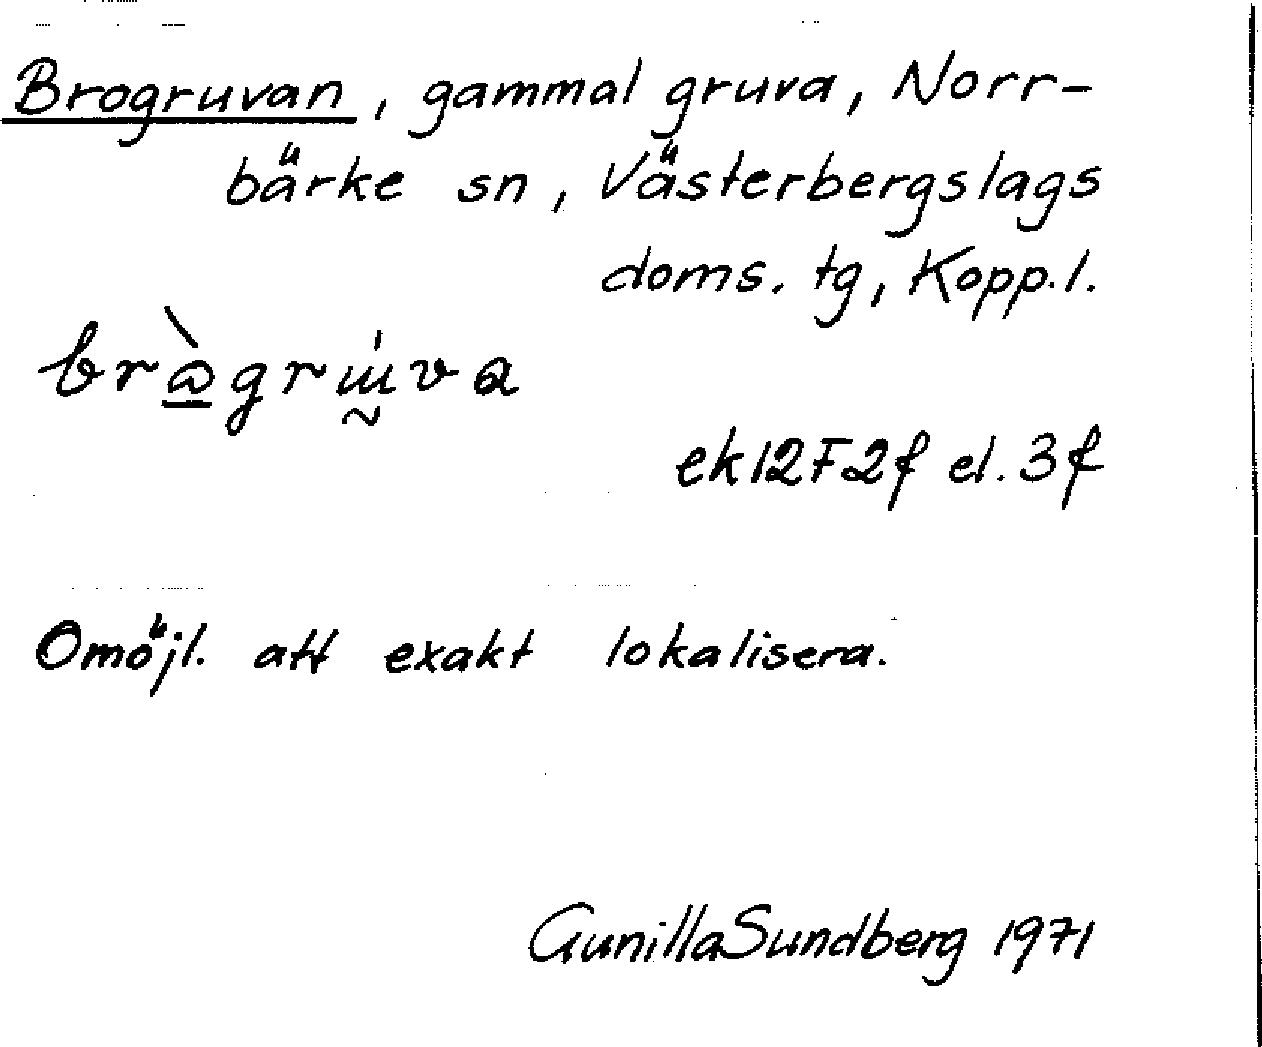 Brogruvan, gammal gruva, Norr-
bärke sn, Västerbergslags
doms. tg, Kopp.l.
brògrɯ́va
ek12F2f el. 3f
Omöjl. att exakt lokalisera.
Gunilla Sundberg 1971